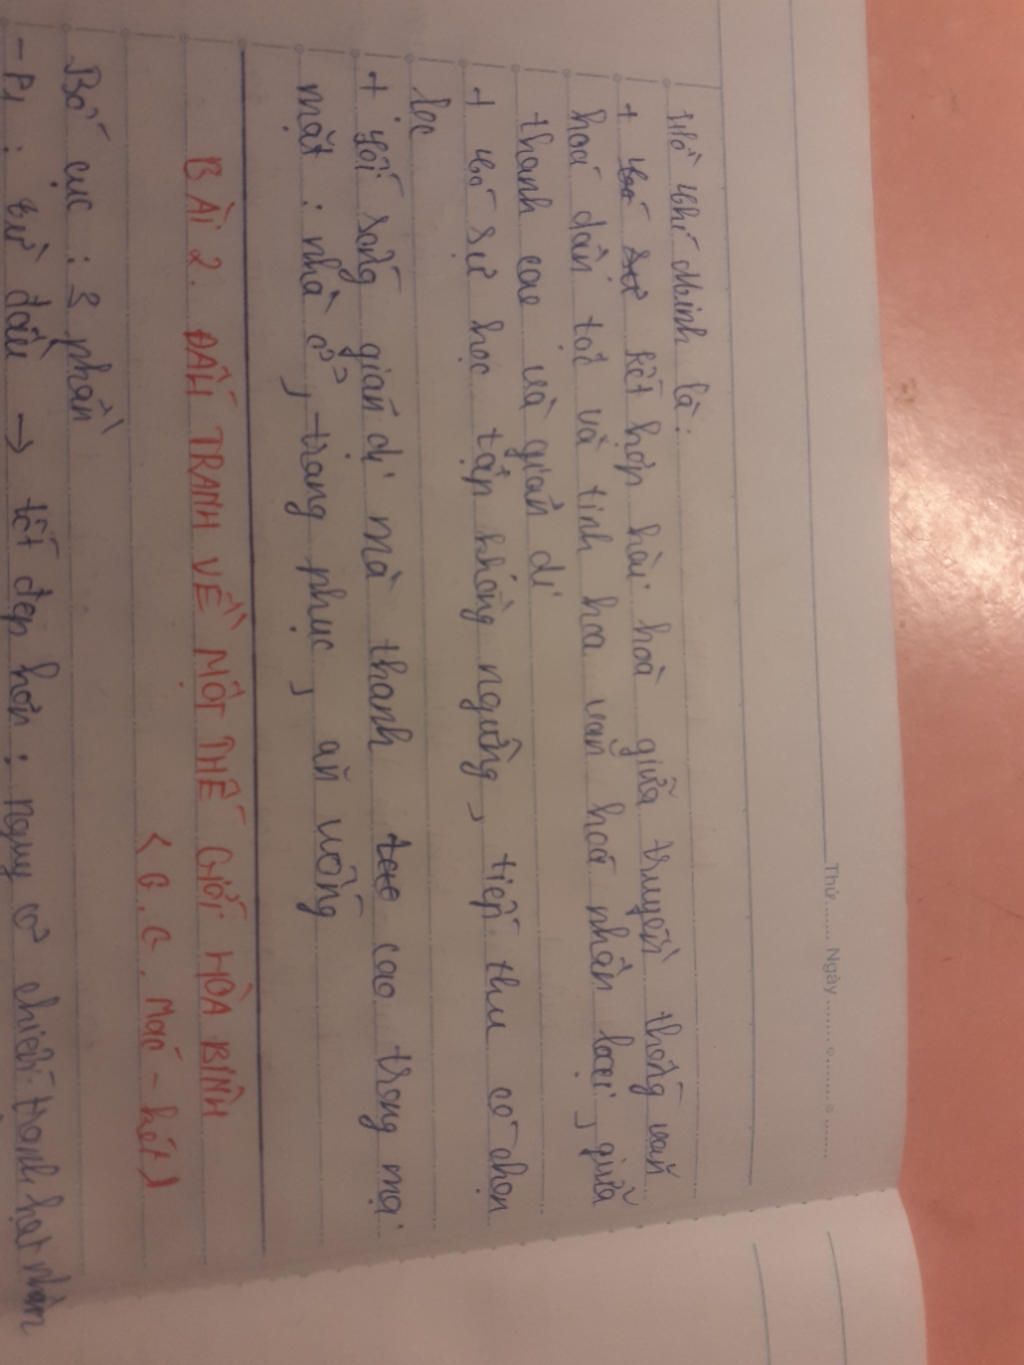 Thứ ...... Ngày ...............
Hồ Chí Minh là:
+ Có sự kết hợp hài hoà giữa truyền thống văn
hoá dân tộc và tinh hoa văn hoá nhân loại, giữa
thanh cao và giản dị
+ có sự học tập không ngừng, tiếp thu có chọn
lọc
+ lối sống giản dị mà thanh cao trong mọi
mặt : nhà ở, trang phục, ăn uống
BÀI 2. ĐẤU TRANH VỀ MỘT THẾ GIỚI HÒA BÌNH
( G. G. Mác - két )
Bố cục : 3 phần
- P1 : từ đầu → tốt đẹp hơn : nguy cơ chiến tranh hạt nhân